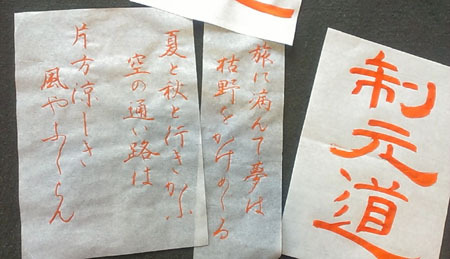 制元道
旅に病んて夢は
枯野をかけめくる
夏と秋と行きかふ
空の通い路は
片方涼しき
風やふくらん